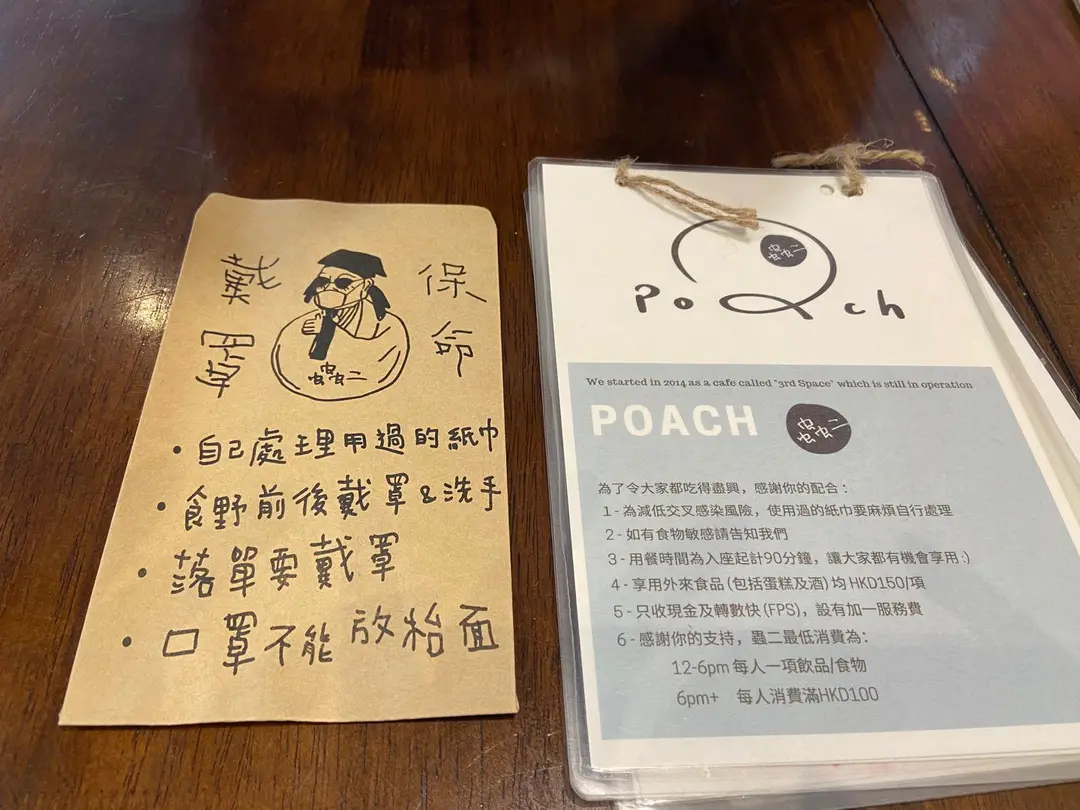 戴罩
保命
蟲二
・自己處理用過的紙巾
・食野前後戴罩&洗手
・落單要戴罩
・口罩不能放枱面
蟲二
poach
We started in 2014 as a cafe called "3rd Space" which is still in operation
POACH
蟲二
為了令大家都吃得盡興，感謝你的配合：
1 - 為減低交叉感染風險，使用過的紙巾要麻煩自行處理
2 - 如有食物敏感請告知我們
3 - 用餐時間為入座起計90分鐘，讓大家都有機會享用 :)
4 - 享用外來食品 (包括蛋糕及酒) 均 HKD150/項
5 - 只收現金及轉數快 (FPS)，設有加一服務費
6 - 感謝你的支持，蟲二最低消費為：
12-6pm 每人一項飲品/食物
6pm+ 每人消費滿HKD100